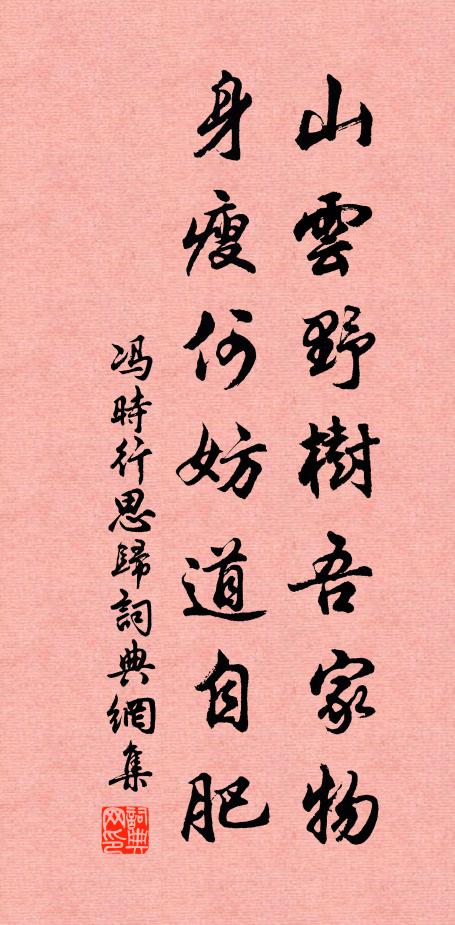 山雲野樹吾家物
身瘦何妨道自肥
冯時行思歸詞典網集
詞典网印